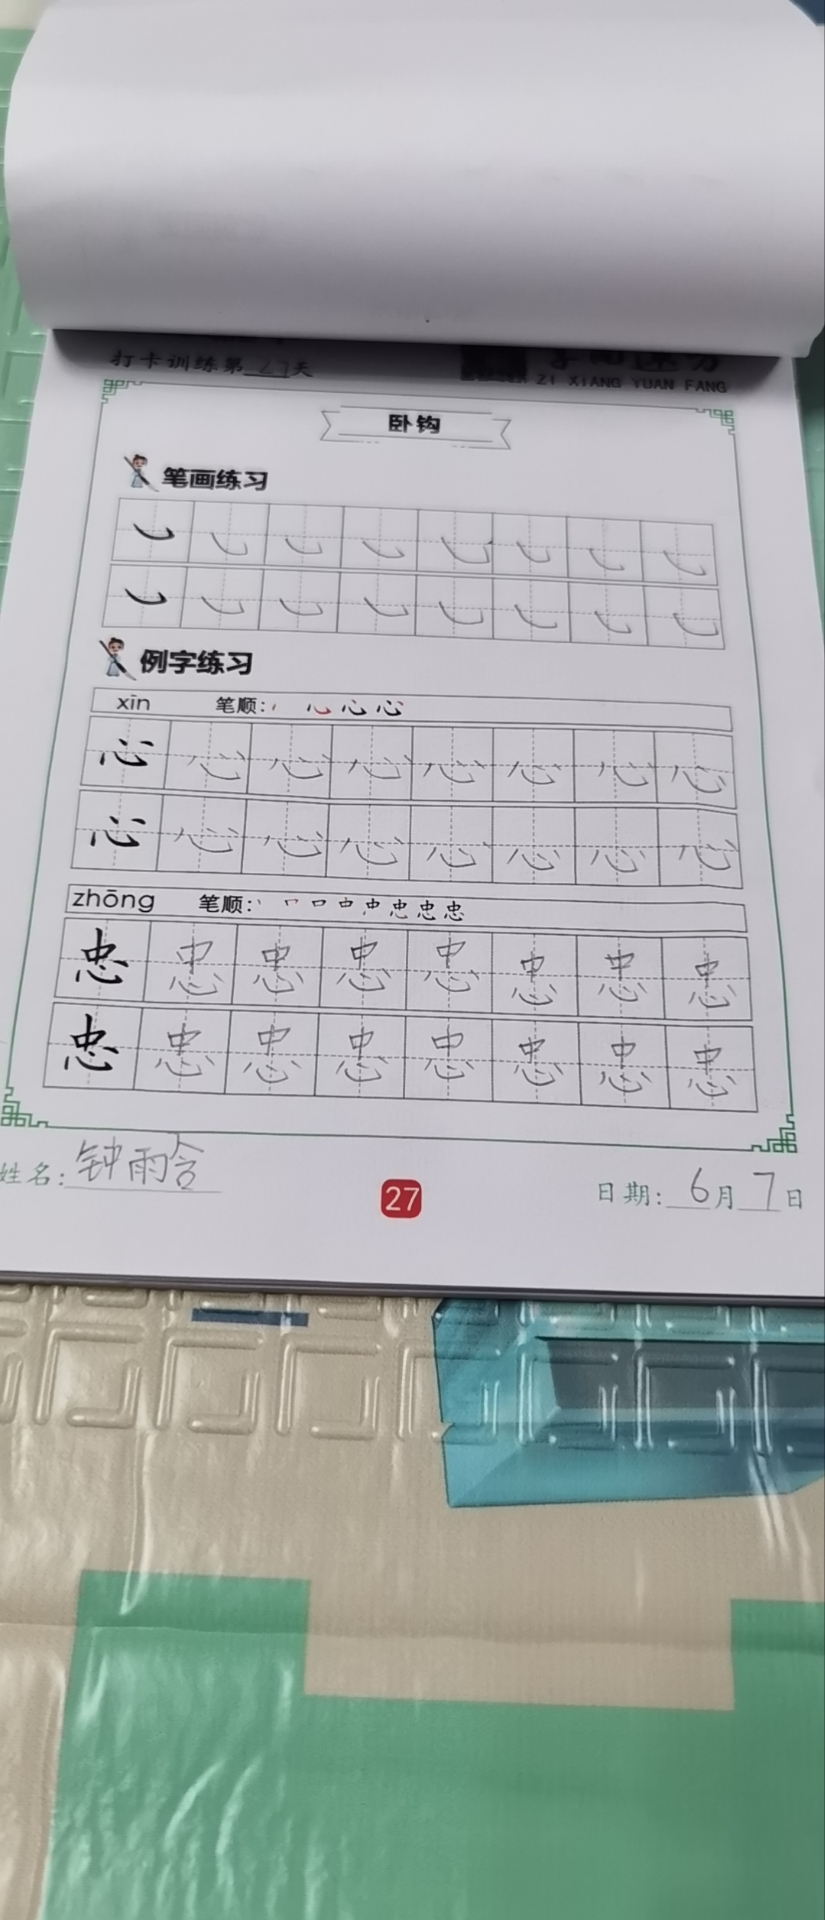 打卡训练第27天
ZI XIANG YUAN FANG
卧钩
笔画练习
例字练习
xīn 笔顺: 心心
心心心心心心心心
心心心心心心心心
zhōng 笔顺: 口口中中忠忠忠
忠忠忠忠忠忠忠忠
忠忠忠忠忠忠忠忠
姓名:钟雨含
27
日期:6月7日